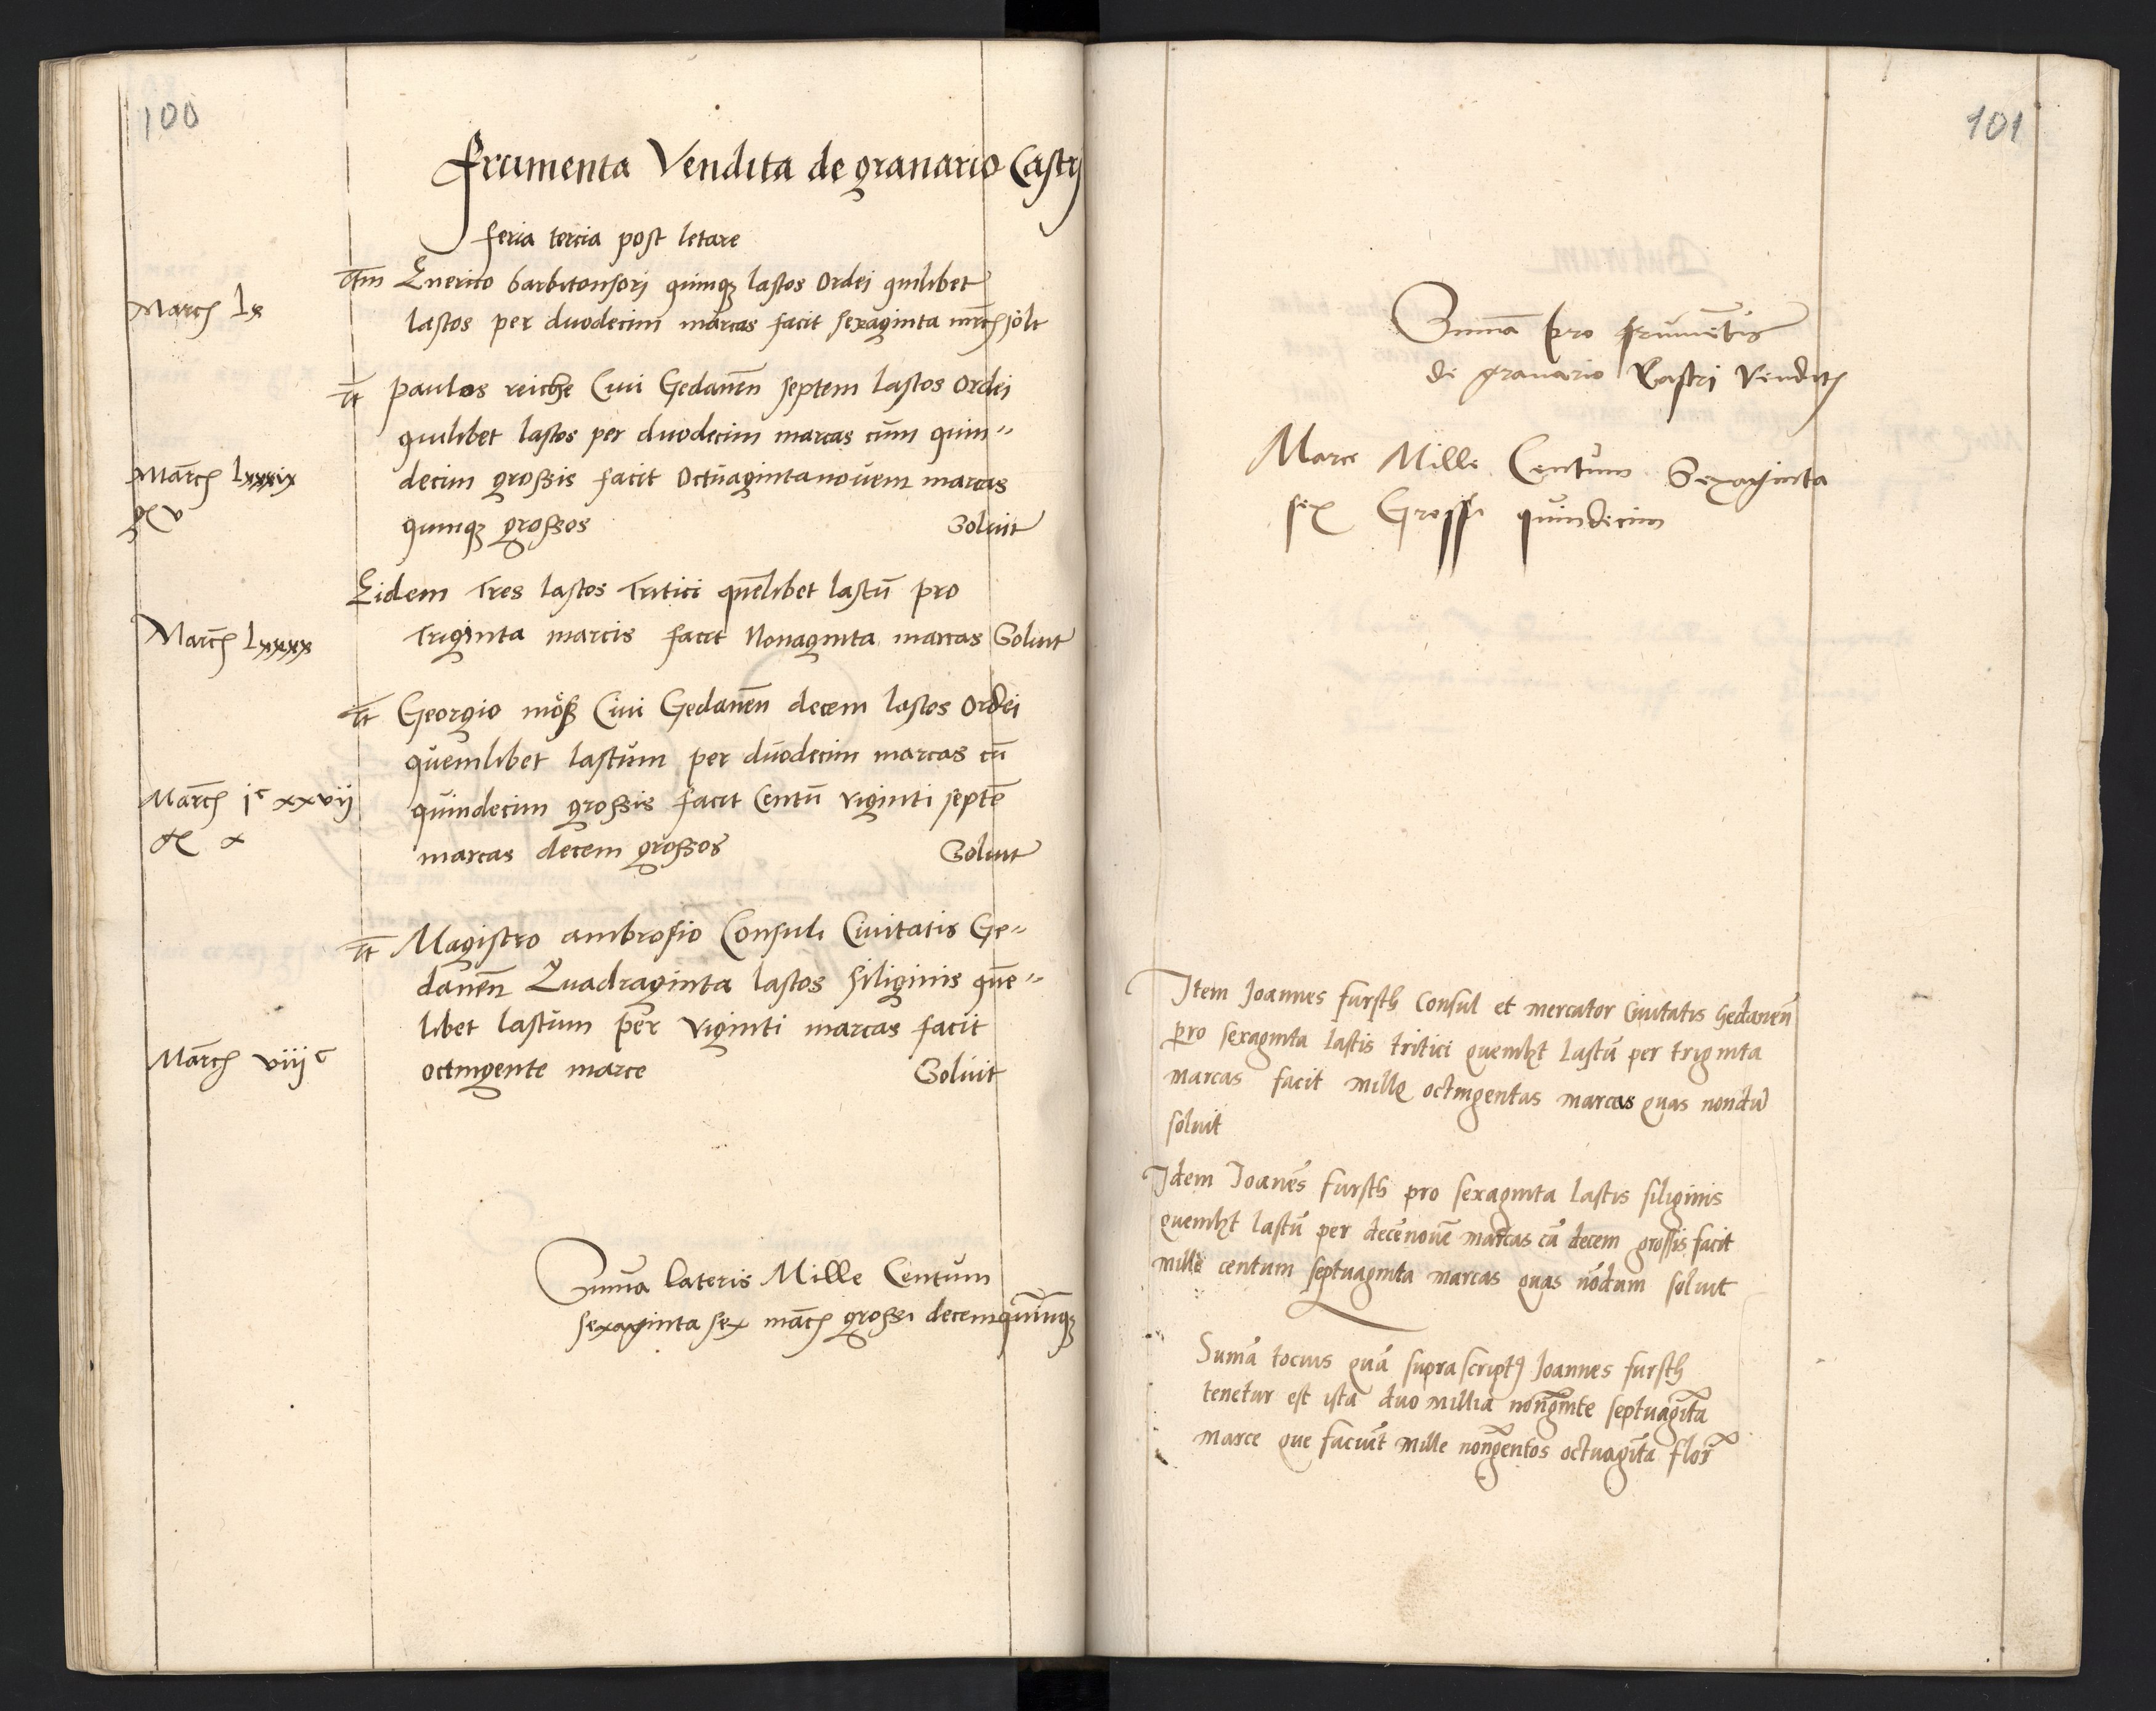 100
Frumenta Vendita de granario Castrj
feria tercia post letare
Itm Enerico barbitonsorj quinqz lastos Ordei quilibet
March lx
lastos per duodecim marcas facit sexaginta mrch solt
It paulos reiche Ciui Gedanen̄ septem lastos Ordei
quilibet lastos per duodecim marcas cum quin„
March lxxxix
decim grossis facit Octuagintanouem marcas
g v
quinqz grossos Soluit
Eidem Tres lastos Tritici quēlibet lastū pro
March lxxxx
Triginta marcis facit Nonaginta marcas Soluit
It Georgio möß Ciui Gedanen̄ decem lastos Ordei
quemlibet lastum per duodecim marcas cū
March jc xxvij
quindecim grossis facit Centū viginti septē
g x
marcas decem grossos Soluit
It Magistro ambrosio Consuli Ciuitatis Ge„
danen̄ Quadraginta lastos siliginis quē„
libet lastum per viginti marcas facit
March viijc
octingente marce Soluit
Suma lateris Mille Centum
sexaginta sex march grossi decemquinqz
101
Sumā pro frumētis
de granario Castri Vendit
Marce Mille Centum Sexaginta
sex Grossi quindecim
Item Joannes fursth Consul et mercator Ciuitatis Gedanen̄
pro sexaginta lastis tritici quemlzt lastū per triginta
marcas facit mille octingentas marcas quas nondū
soluit
Idem Joanēs fursth pro sexaginta lastis siliginis
quemlzt lastū per decēnouē marcas cū decem grossis facit
mille centum septuaginta marcas quas nōdum soluit
Sumā tocius quā suprascriptꝯ Joannes fursth
tenetur est ista duo millia nongīnte septuagīta
marce que faciūt mille nongentos octuagīta flor̄